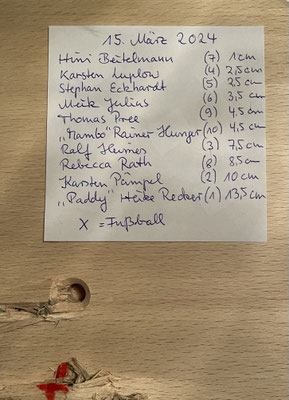 15. März 2024
Hinni Beutelmann (7) 1 cm
Karsten Luplow (4) 2,5 cm
Stephan Eckhardt (5) 2,5 cm
Meik Julius (6) 3,5 cm
Thomas Pree (9) 4,5 cm
„Mambo" Rainer Hunger (10) 4,5 cm
Ralf Heines (3) 7,5 cm
Rebecca Rath (8) 8,5 cm
Karsten Pämpel (2) 10 cm
„Paddy" Heike Redner (1) 13,5 cm
X = Fußball